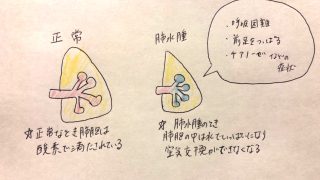 正常
肺水腫
・呼吸困難
・前足をつっぱる
・チアノーゼなどの
症状
☆正常なとき肺胞は
酸素で満たされている
☆肺水腫のとき
肺胞の中は水でいっぱいになり
空気交換ができなくなる